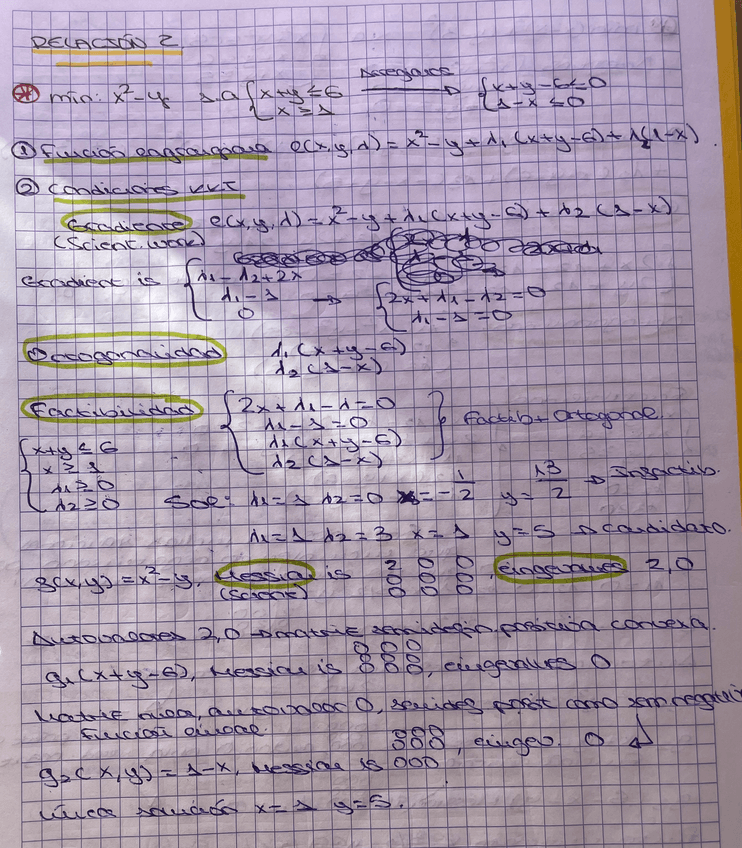 RELACIÓN 2
* min: x² - y s.a { x+y ≤ 6 { x ≥ 1 → { x+y-6 ≤ 0 { 1-x ≤ 0
① Función lagrangiana l(x,y,λ) = x² - y + λ₁ (x+y-6) + λ₂(1-x)
② Condiciones KKT
Gradiente l(x,y,λ) = x² - y + λ₁(x+y-6) + λ₂ (1-x)
(Scient. work)
Gradient is { λ₁ - λ₂ + 2x { λ₁ - 1 { 0 → { 2x + λ₁ - λ₂ = 0 { λ₁ - 1 = 0
Ortogonalidad λ₁ (x+y-6)
λ₂ (1-x)
Factibilidad { 2x + λ₁ - λ = 0
{ λ₁ - 1 = 0 } Factib + Ortogonal.
{ x+y ≤ 6 { λ₁(x+y-6)
{ x ≥ 1 { λ₂ (1-x)
{ λ₁ ≥ 0
{ λ₂ ≥ 0 Sol: λ₁ = 1 λ₂ = 0 x = -1/2 y = 13/2 → Infactib.
λ₁ = 1 λ₂ = 3 x = 1 y = 5 → Candidato.
g(x,y) = x² - y, Hessian is 2 0 0 , eingenvalues 2,0
(Scient) 0 0 0
0 0 0
Autovalores 2,0 → matriz semidefin. positiva convexa.
g₁(x+y-6), Hessian is 000 000 000, eingenvalues 0
Matriz nula, autovalor 0, semidef posit como semnegativa
función lineal.
g₂(x,y) = 1-x, Hessian is 000 000 000, eingev. 0
Única solución x = 1 y = 5.